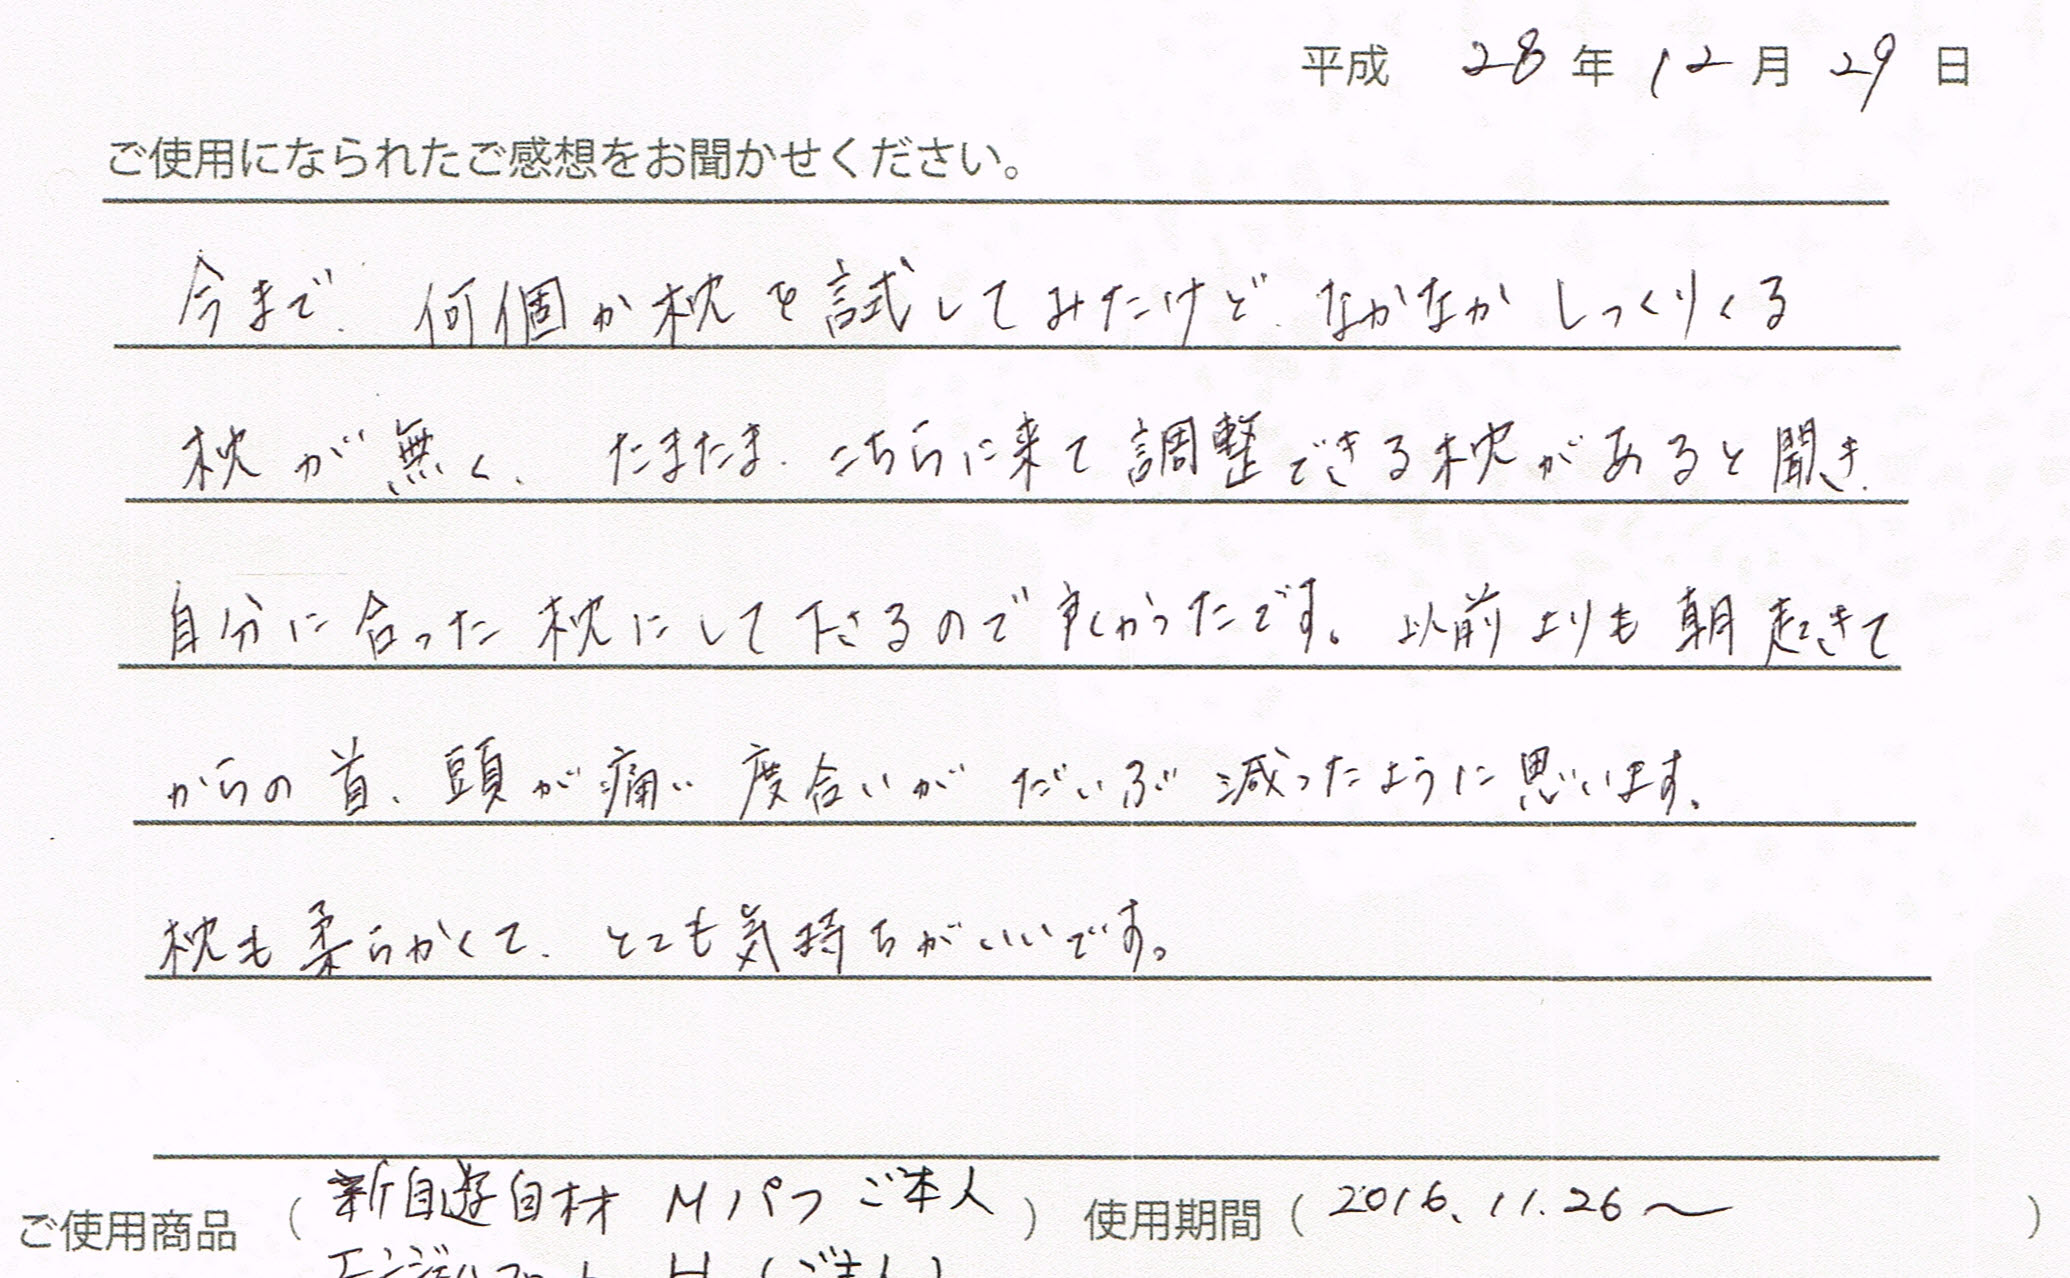 平成 28 年 12 月 29 日
ご使用になられたご感想をお聞かせください。
今まで、何個か枕を試してみたけど、なかなかしっくりくる
枕が無く、たまたま、こちらに来て調整できる枕があると聞き、
自分に合った枕にして下さるので良かったです。以前よりも朝起きて
からの首、頭が痛い度合いがだいぶ減ったように思います。
枕も柔らかくて、とても気持ちがいいです。
ご使用商品 ( 新自遊自材 Mパフ ご本人 ) 使用期間 ( 2016.11.26〜 )